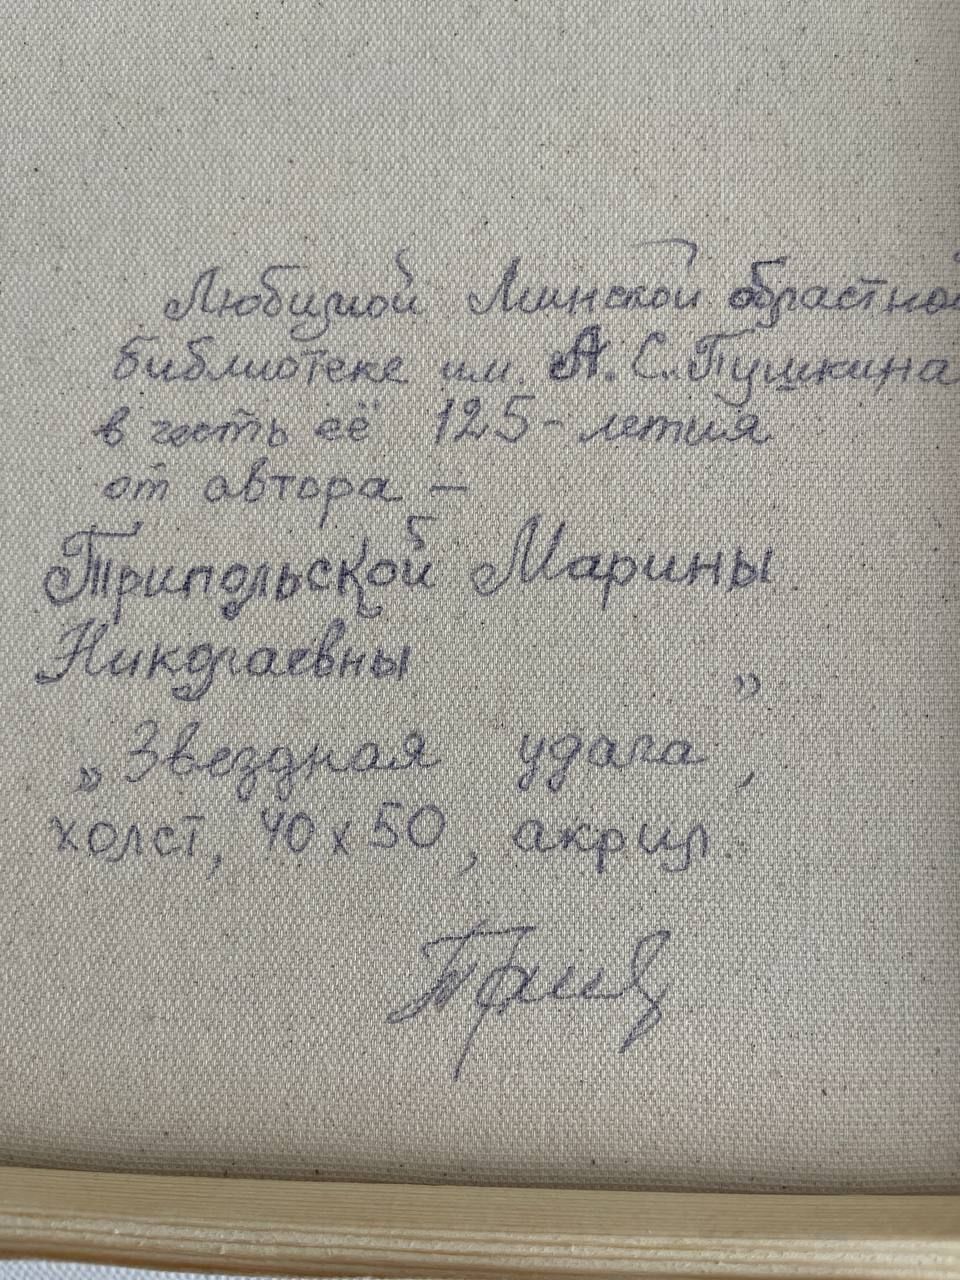 Любимой Минской областной
библиотеке им. А. С. Пушкина
в честь её 125-летия
от автора —
Трипольской Марины
Николаевны
„Звездная удача”,
холст, 40х50, акрил.